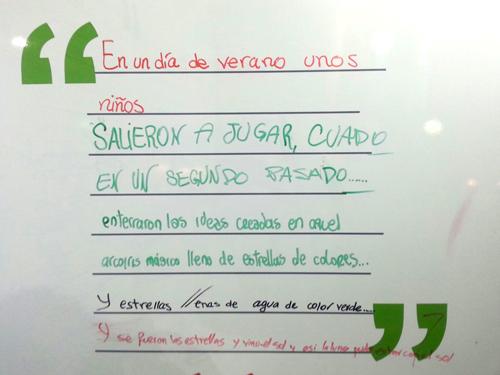 En un día de verano unos
niños
SALIERON A JUGAR, CUADO
EN UN SEGUNDO PASADO.....
enterraron las ideas creadas en aquel
arcoiris mágico lleno de estrellas de colores...
Y estrellas llenas de agua de color verde....
Y se fueron las estrellas y vino el sol y asi la luna pudo estar con el sol